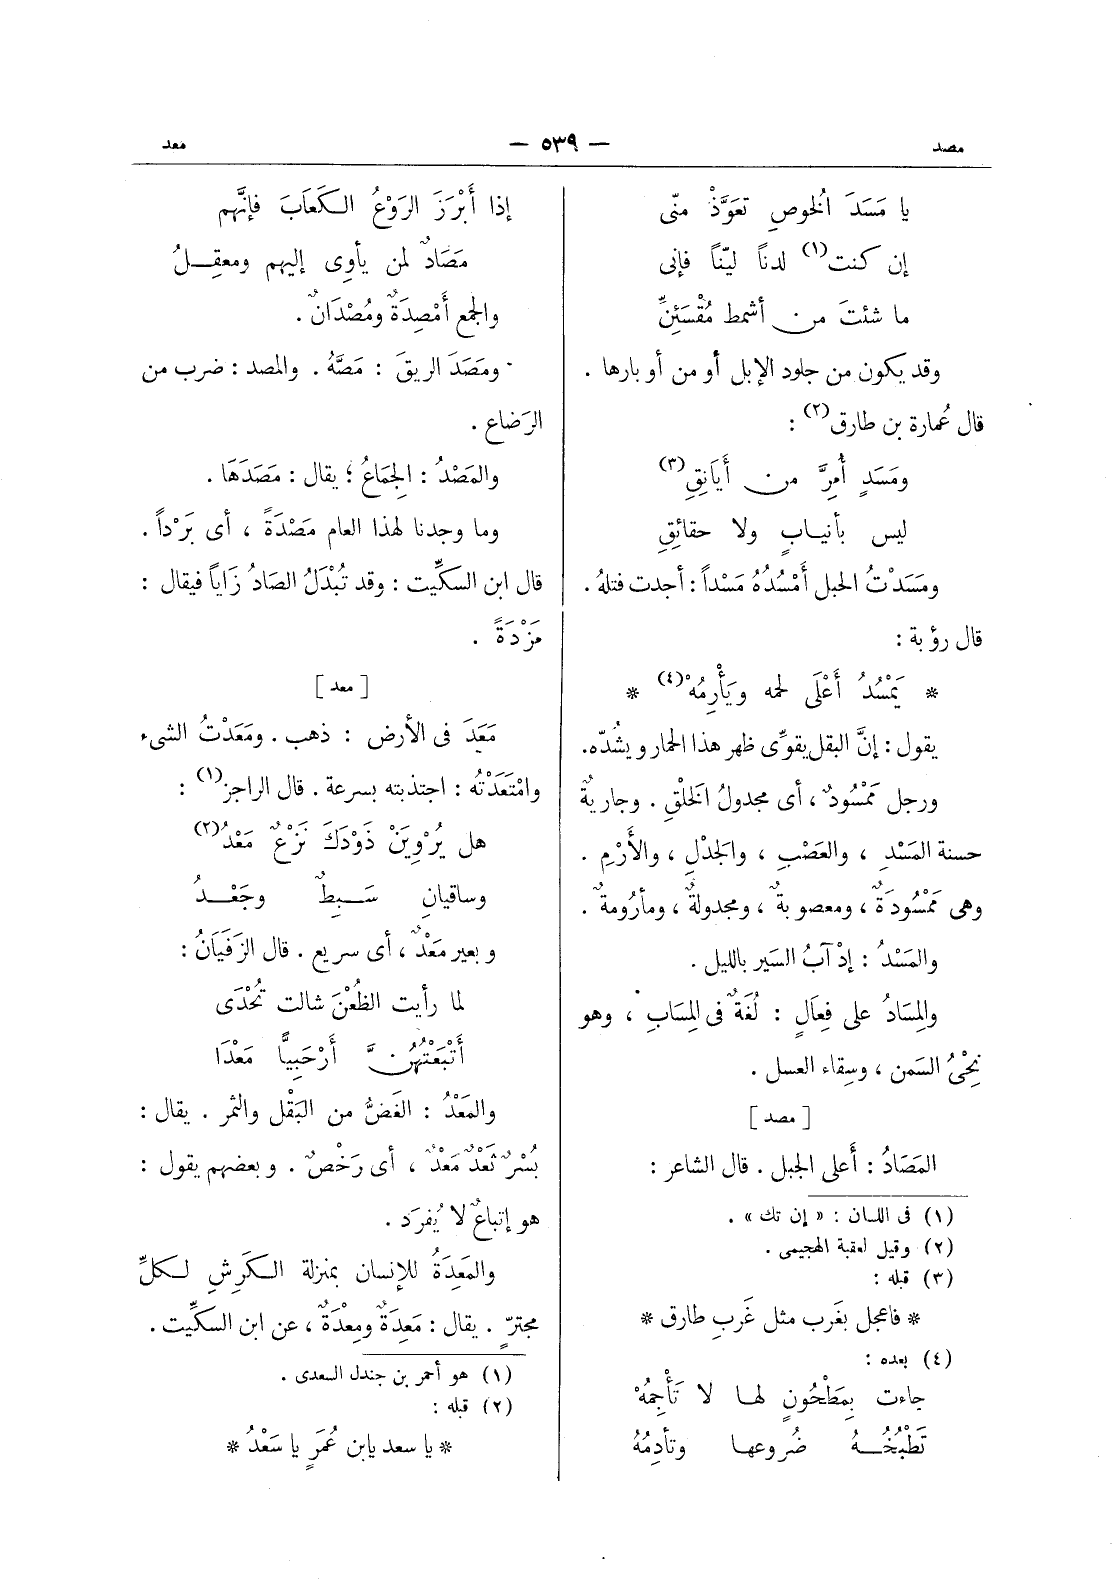 مصد — ٥٣٩ — معد
يا مَسَدَ الخوصِ تعَوَّذْ منّى
إن كنت(١) لدناً ليّناً فإنى
ما شئتَ من أشمط مُقْسَئِنِّ
وقد يكون من جلود الإبل أو من أوبارها .
قال عُمارة بن طارق(٢) :
ومَسَدٍ أُمِرَّ من أَيَانِقِ(٣)
ليس بأنيابٍ ولا حقائقِ
ومَسَدْتُ الحبل أَمْسُدُهُ مَسْداً : أجدت فتلهُ .
قال رؤبة :
* يَمْسُدُ أَعْلَى لحمه ويَأْرِمُهْ(٤) *
يقول : إنَّ البقل يقوِّى ظهر هذا الحمار ويشُدّه.
ورجل مَمْسُودٌ ، أى مجدولُ الخَلْقِ . وجاريةٌ
حسنة المَسْدِ ، والعَصْبِ ، والجَدْلِ ، والأَرْمِ .
وهى مَمْسُودَةٌ ، ومعصوبةٌ ، ومجدولةٌ ، ومأرُومةٌ .
والمَسْدُ : إدْآبُ السَير بالليل .
والمِسَادُ على فِعَالٍ : لُغَةٌ فى المِسَابِ ، وهو
نِحْىُ السَمن ، وسِقاء العسل .
[ مصد ]
المَصَادُ : أعلى الجبل . قال الشاعر :
(١) فى اللسان : « إن تك » .
(٢) وقيل لعقبة الهجيمى .
(٣) قبله :
* فاعجل بغَرب مثل غَربِ طارق *
(٤) بعده :
جاءت بِمَطْحُونٍ لها لا تَأْجِمُهْ
تَطْبُخُهُ ضُروعها وتأدِمُهُ
إذا أَبْرَزَ الرَوْعُ الكَعَابَ فإنَّهم
مَصَادٌ لمن يأوِى إليهم ومعقِلُ
والجمع أَمْصِدَةٌ ومُصْدَانٌ .
ومَصَدَ الريقَ : مَصَّهُ . والمصد : ضرب من
الرَضاع .
والمَصْدُ : الجِمَاعُ ؛ يقال : مَصَدَهَا .
وما وجدنا لهذا العام مَصْدَةً ، أى بَرْداً .
قال ابن السكِّيت : وقد تُبْدَلُ الصَادُ زَاياً فيقال :
مَزْدَةً .
[ معد ]
مَعَدَ فى الأرض : ذهب . ومَعَدْتُ الشىء
وامْتَعَدْتُه : اجتذبته بسرعة . قال الراجز(١) :
هل يُرْوِيَنْ ذَوْدَكَ نَزْعٌ مَعْدُ(٢)
وساقيانِ سَبِطٌ وجَعْدُ
وبعير مَعْدٌ ، أى سريع . قال الزَفَيَانُ :
لما رأيت الظُعْنَ شالت تُحْدَى
أَتْبَعْتُهُنَّ أَرْحَبِيًّا مَعْدَا
والمَعْدُ : الغَضُّ من البَقْل والثمر . يقال :
بُسْرٌ ثَعْدٌ مَعْدٌ ، أى رَخْصٌ . وبعضهم يقول :
هو إتباعٌ لا يُفرَد .
والمَعِدَةُ للإنسان بمنزلة الكَرِشِ لكلِّ
مجترٍّ . يقال : مَعِدَةٌ ومِعْدَةٌ ، عن ابن السكِّيت .
(١) هو أحمر بن جندل السعدى .
(٢) قبله :
* يا سعد يابن عُمَرٍ يا سَعْدُ *